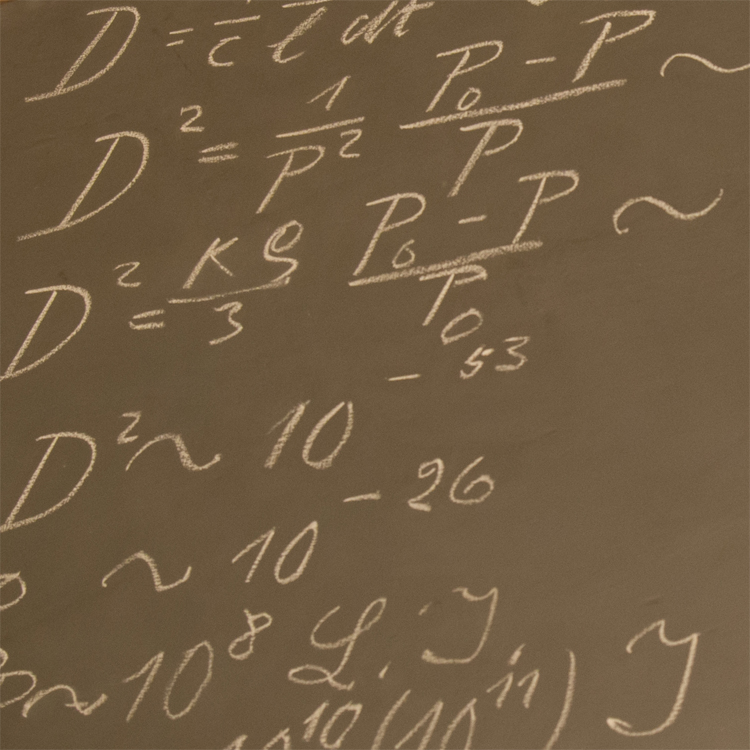 D = 1/c 1/l dl/dt
D² = 1/P² (P₀ - P)/P ~
D² = κρ/3 (P₀ - P)/P₀ ~
D² ~ 10⁻⁵³
ρ ~ 10⁻²⁶
P ~ 10⁸ L. J.
10¹⁰ (10¹¹) J